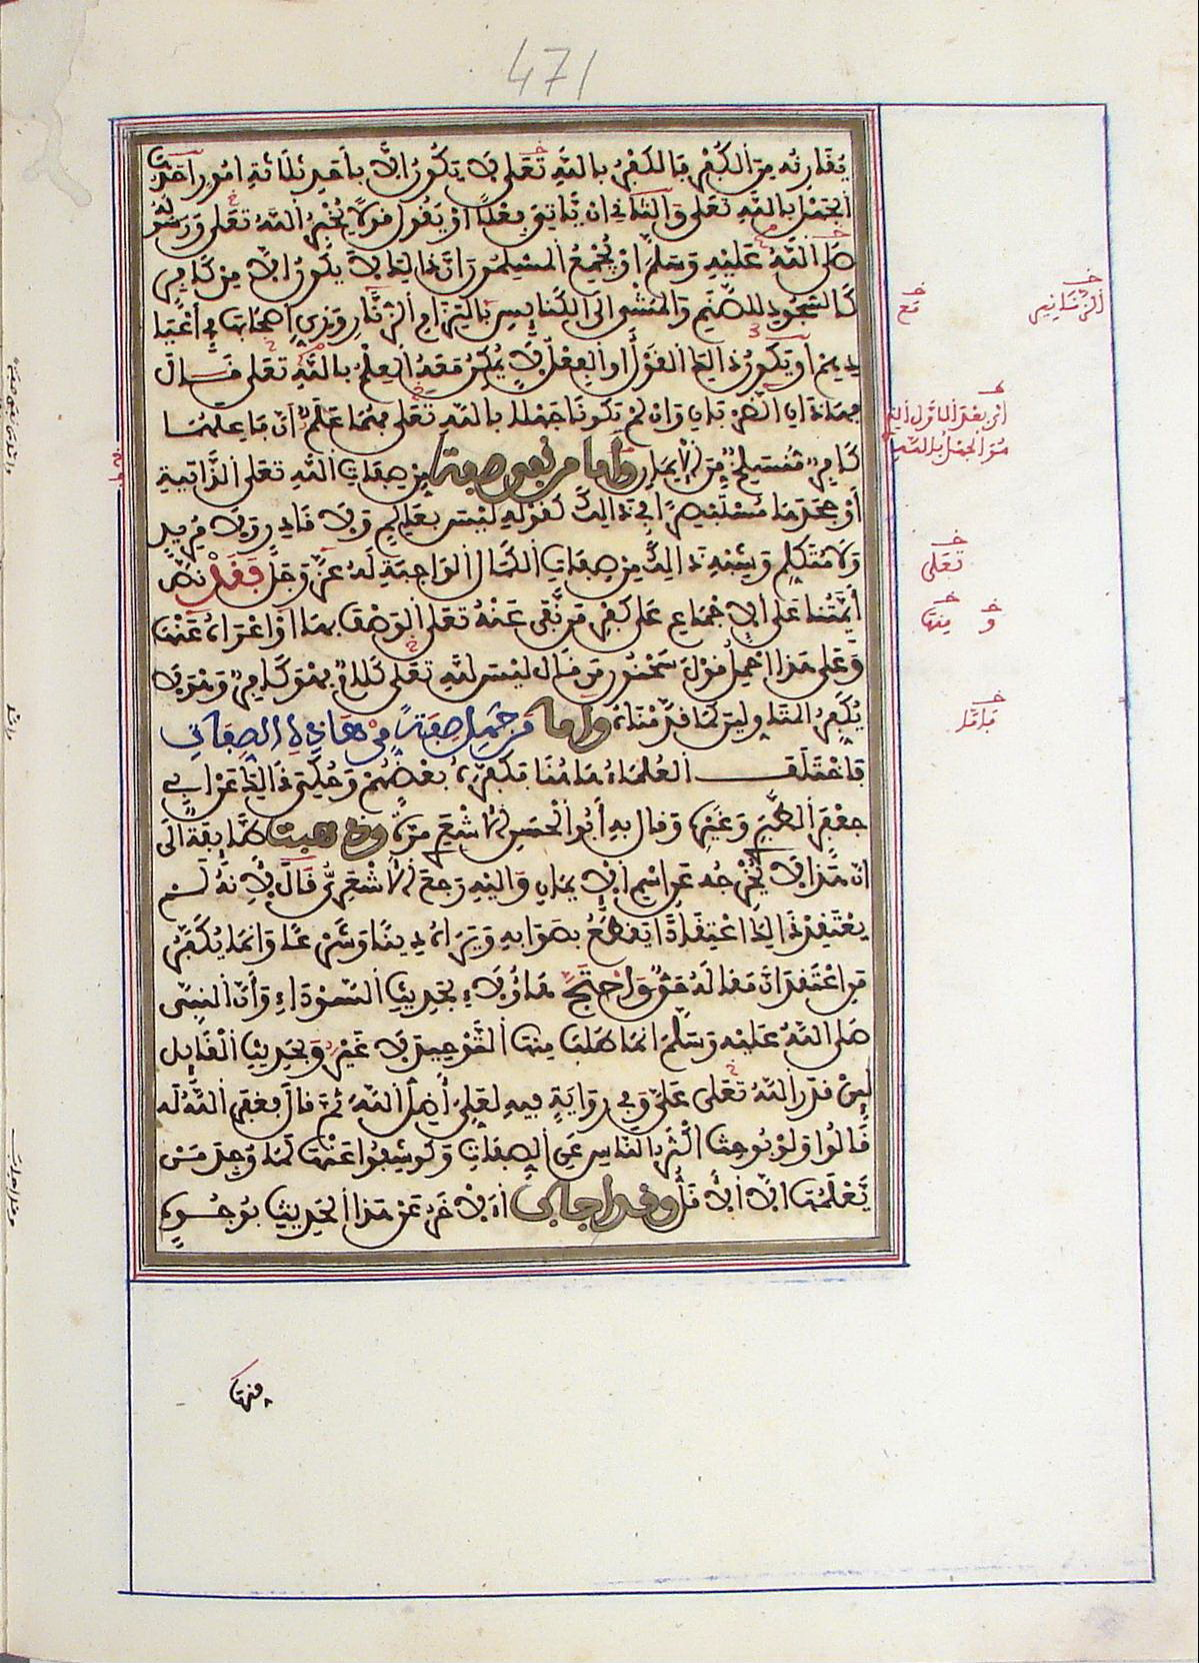 471
يفارقه من الكفر فالكفر بالله تعلى لا يكون إلا بأحد ثلاثة أمور أحدها
الجهل بالله تعلى والثاني أن يأتي فعلا أو يقول قولا يخبر الله تعلى ورسوله
صلى الله عليه وسلم أو يجمع المسلمون أن ذلك لا يكون إلا من كافر
كالسجود للصنم والمشي إلى الكنايس بالتزام الزنار وبزي أصحابها في أعيا
ديهم أو يكون ذلك القول أو الفعل لا يمكن معه العلم بالله تعلى قال
فهاذان الضربان وإن لم يكونا جهلا بالله تعلى فهما علم أن فاعلهما
كافر منسلخ من الإيمان وأما من نفى صفة من صفات الله تعلى الذاتية
أو جحدها مستبصرا في ذلك كقوله ليس بعليم ولا قادر ولا مريد
ولا متكلم وشبه ذلك من صفات الكمال الواجبة له عز وجل فقد نص
أيمتنا على الإجماع على كفر من نفى عنه تعلى الوصف بها أو أعراه عنها
وعلى هذا حمل قول سحنون من قال ليس لله تعلى كلام فهو كافر وهو لا
يكفر المتاولين كما قدمناه وأما من جهل صفة من هاذه الصفات
فاختلف العلماء هاهنا فكفره بعضهم وحكي ذلك عن أبي
جعفر الطبري وغيره وقال به أبو الحسن الأشعري مرة وذهبت طايفة إلى
أن هذا لا يخرجه عن اسم الإيمان وإليه رجع الأشعري قال لأنه لم
يعتقد ذلك اعتقادا يقطع بصوابه ويراه دينا وشرعا وإنما يكفر
من اعتقد أن مقاله حق واحتج هاؤلاء بحديث السوداء وأن النبي
صلى الله عليه وسلم إنما طلب منها التوحيد لا غير وبحديث القايل
لين قدر الله تعلى علي وفي رواية فيه لعلي أضل الله ثم قال فغفر الله له
قالوا ولو بوحث أكثر الناس عن الصفات وكوشفوا عنها لما وجد من
يعلمها إلا الأقل وقد أجاب الآخر عن هذا الحديث بوجوه
الزنانير
مع
تعلى
و
منها
فأما
منها